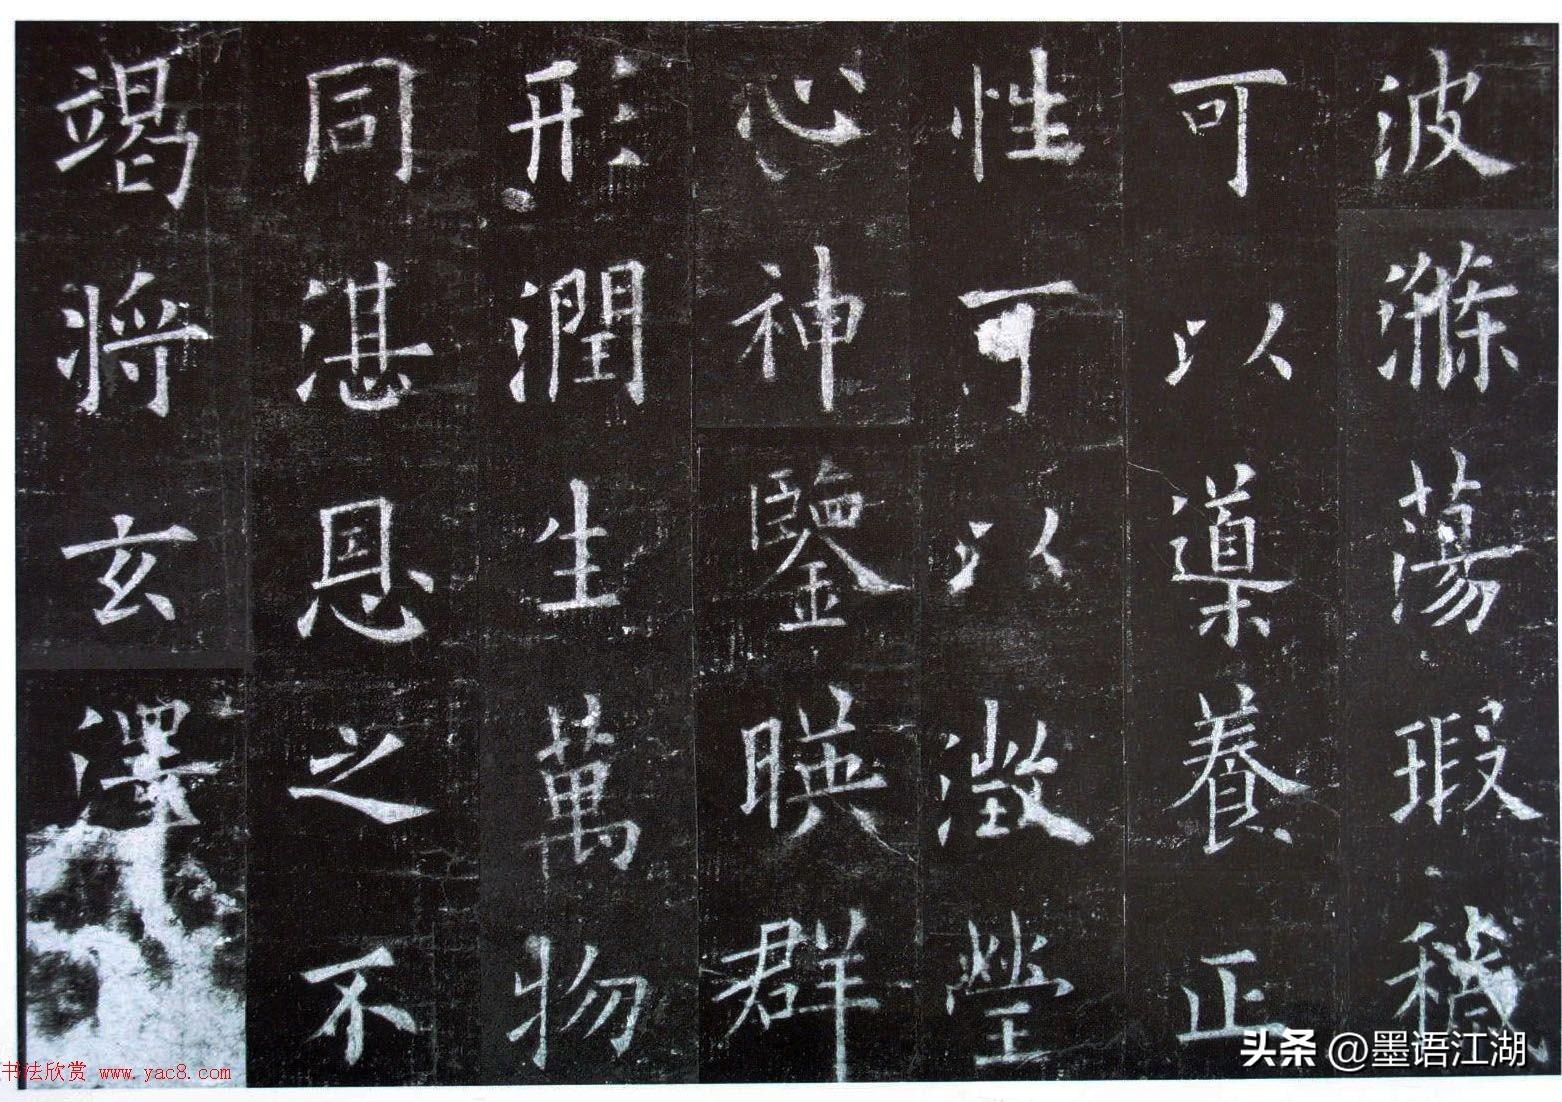 波滌蕩瑕穢
可以導養正
性可以澂瑩
心神鑒暎群
形潤生萬物
同湛恩之不
竭將玄澤
头条 @墨语江湖
书法欣赏 www.yac8.com